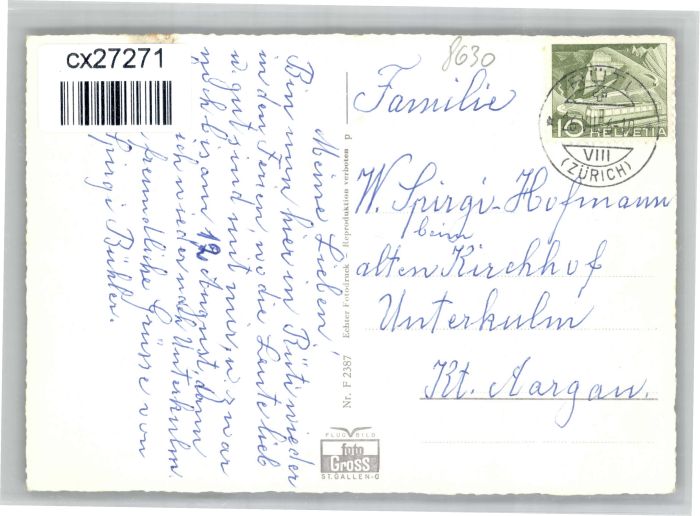 cx27271
8630
Familie
W. Spirgi-Hofmann
beim
alten Kirchhof
Unterkulm
Kt. Aargau.
10 HELVETIA
VIII
(ZÜRICH)
Nr. F 2387 Echter Fotodruck – Reproduktion verboten p
FLUGBILD
foto
Gross
ST. GALLEN-O
Meine Lieben,
Bin nun hier in Rüti wieder
in den Ferien, wo die Leute lieb
u. gut sind mit mir, u zwar
noch bis am 12 August, dann
ich wieder nach Unterkulm.
freundliche Grüsse von
Spirgi Bühler.